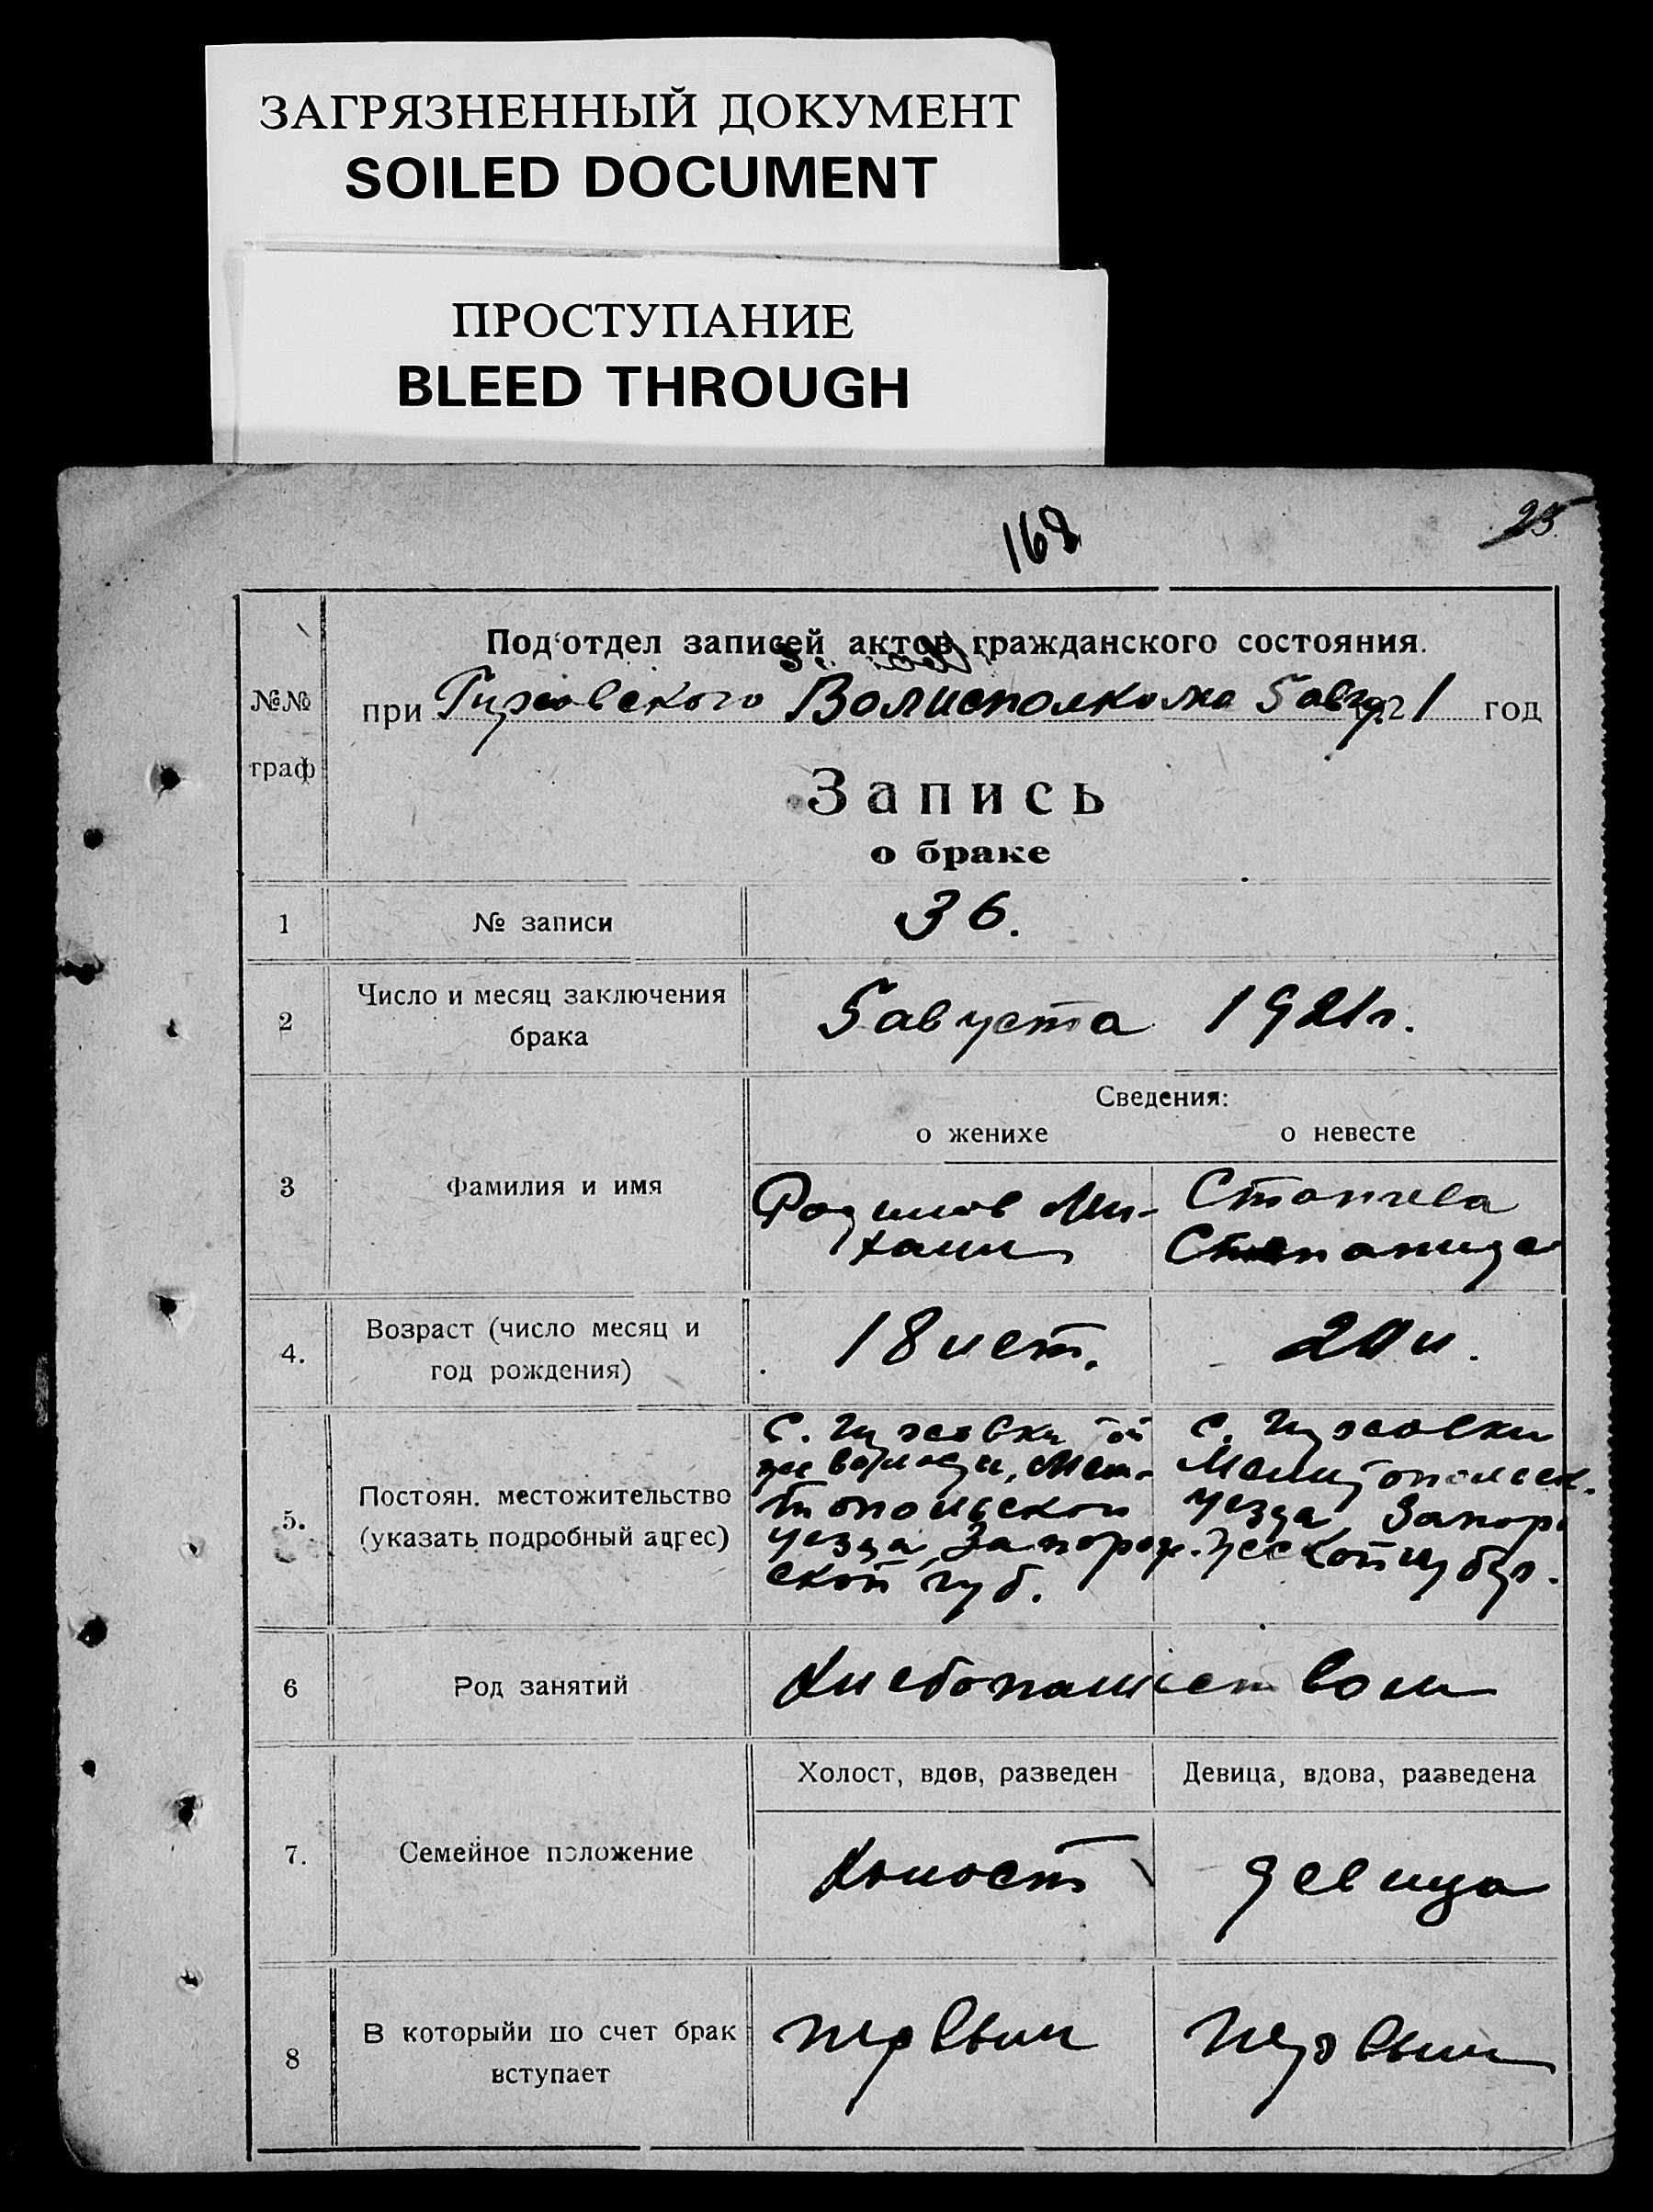 ЗАГРЯЗНЕННЫЙ ДОКУМЕНТ
SOILED DOCUMENT
ПРОСТУПАНИЕ
BLEED THROUGH
168
25.
Под'отдел записей актов гражданского состояния.
№№
граф
при Гирсовского Волисполкома 5 авг. 1921 год
Запись
о браке
1
№ записи
36.
2
Число и месяц заключения
брака
5 августа 1921 г.
Сведения:
о женихе
о невесте
3
Фамилия и имя
Михаил
Степанида
4.
Возраст (число месяц и
год рождения)
18 лет.
20 л.
5.
Постоян. местожительство
(указать подробный адрес)
с. Гирсовки той
же волости, Мели-
топольского
уезда, Запорож-
ской губ.
с. Гирсовки
Мелитопольск.
уезда Запор-
жской губер.
6
Род занятий
Хлебопашеством
7.
Семейное положение
Холост, вдов, разведен
Девица, вдова, разведена
холост
девица
8
В которыйи по счет брак
вступает
первый
первый